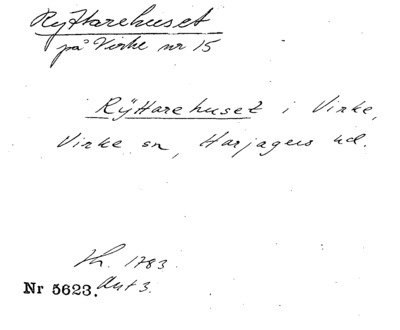 Ryttarehuset
på Virke nr 15
Rÿttarehuset i Virke,
Virke sn, Harjagers hd.
Lh. 1783.
Nr 5623. Akt 3.